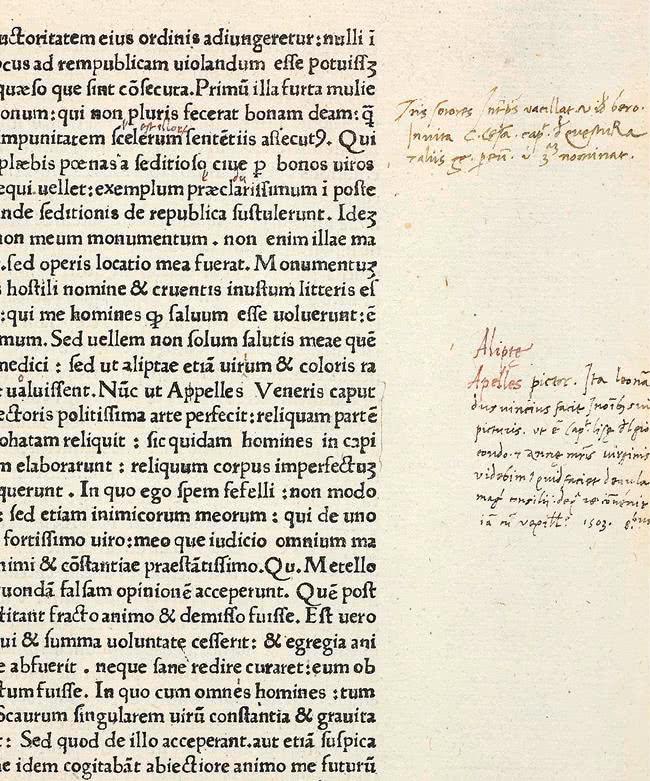 uctoritatem eius ordinis adiungeretur:nulli ī
ocus ad rempublicam uiolandum esse potuissꝫ
quæso que sint cōsecuta.Primū illa furta mulie
onum:qui non pluris fecerat bonam deam:q̄
impunitatem scelerum sentētiis assecutꝰ. Qui
plæbis pœnas a seditioso ciue ꝑ bonos uiros
equi uellet:exemplum præclarissimum i poste
nde seditionis de republica sustulerunt. Ideꝫ
non meum monumentum . non enim illae ma
.sed operis locatio mea fuerat. Monumentuꝫ
s hostili nomine & cruentis inustum litteris es
:qui me homines ꝙ saluum esse uoluerunt:ē
mum. Sed uellem non solum salutis meae quē
medici : sed ut aliptae etiā uirum & coloris ra
e ualuissent. Nūc ut Appelles Veneris caput
ectoris politissima arte perfecit:reliquam partē
ohatam reliquit : sic quidam homines in capi
m elaborarunt : reliquum corpus imperfectuꝫ
querunt . In quo ego spem fefelli :non modo
: sed etiam inimicorum meorum : qui de uno
fortissimo uiro:meo que iudicio omnium ma
nimi & cōstantiae praestātissimo.Qu. Metello
uondā falsam opinionē acceperunt. Quē post
titant fracto animo & demisso fuisse. Est uero
qui & summa uoluntate cesserit: & egregia ani
e abfuerit . neque sane redire curaret:eum ob
tum fuisse. In quo cum omnes homines :tum
Scaurum singularem uirū constantia & grauita
t: Sed quod de illo acceperant.aut etiā suspica
ne idem cogitabāt abiectiore animo me futurū
Tris sorores
nominat.
Alipte
Apelles pictor. Ita leonar
dus vincius facit
picturis. ut ē cap̄ lise del gio
condo. & anne mr̄is virginis
videbim9 quid faciet de aula
mag consilii. de q̄ re cōuenit
iā cū vexill° 1503. 8bris